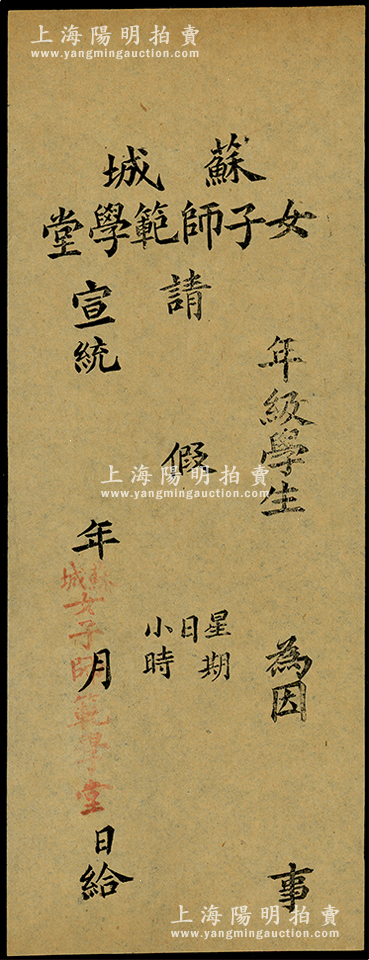 上海陽明拍賣
www.yangmingauction.com
蘇城
女子師範學堂
年級學生 為因 事
請假
星期
日
小時
宣統 年 月 日給
蘇城
女子師範學堂
上海陽明拍賣
www.yangmingauction.com
上海陽明拍賣
www.yangmingauction.com